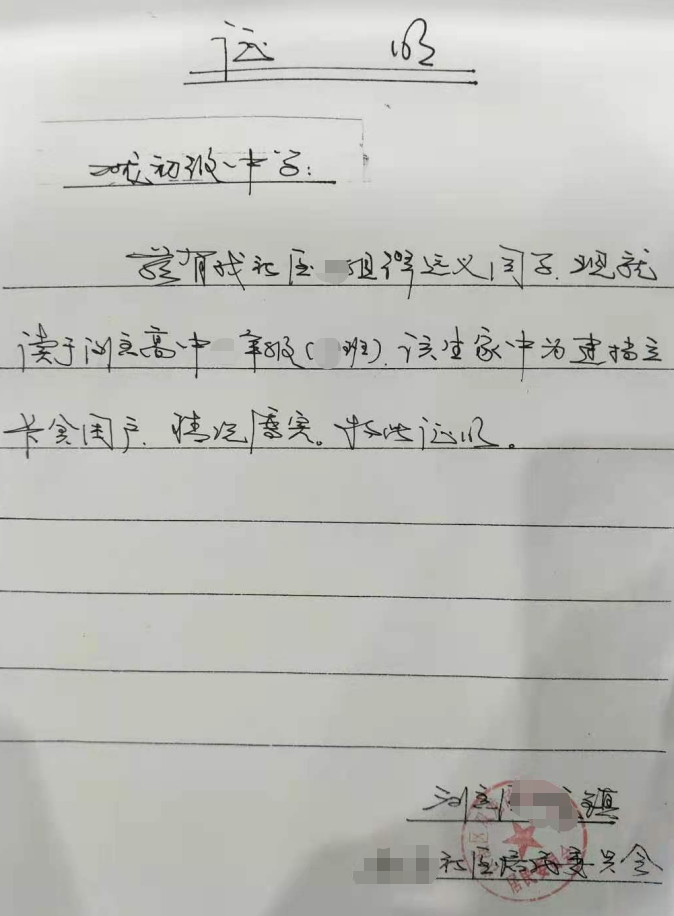 证 明
城初级中学:
兹有我社区 组 学,现就
读于 高中 年级( 班),该生家中为建档立
卡贫困户,情况属实。特此证明。
镇
社区居民委员会